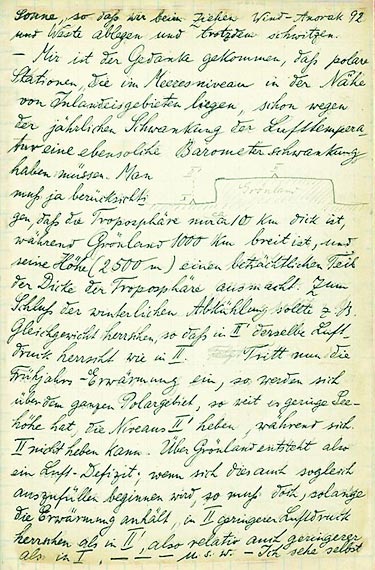 Sonne, so daß wir beim Ziehen Wind-Anorak 92
und Weste ablegen und trotzdem schwitzen.
– Mir ist der Gedanke gekommen, daß polare
Stationen, die im Meeresniveau in der Nähe
von Inlandeisgebieten liegen, schon wegen
der jährlichen Schwankung der Lufttempera-
tur eine ebensolche Barometerschwankung
haben müssen. Man
Grönland
muß ja berücksichti-
gen, daß die Troposphäre nur ca 10 km dick ist,
während Grönland 1000 km breit ist, und
seine Höhe (2500 m) einen beträchtlichen Teil
der Dicke der Troposphäre ausmacht. Zum
Schluß der winterlichen Abkühlung sollte z. B.
Gleichgewicht herrschen, so daß in II' derselbe Luft
druck herrscht wie in II. Tritt nun die
Frühjahrs-Erwärmung ein, so werden sich
über dem ganzen Polargebiet, so weit es geringe See-
höhe hat, die Niveaus II' heben, während sich
II nicht heben kann. Über Grönland entsteht also
ein Luft-Defizit; wenn sich dies auch sogleich
auszufüllen beginnen wird, so muß doch, solange
die Erwärmung anhält, in II geringerer Luftdruck
herrschen als in II', also relativ auch geringerer
als in I. – I – u. s. w. – Ich sehe selbst